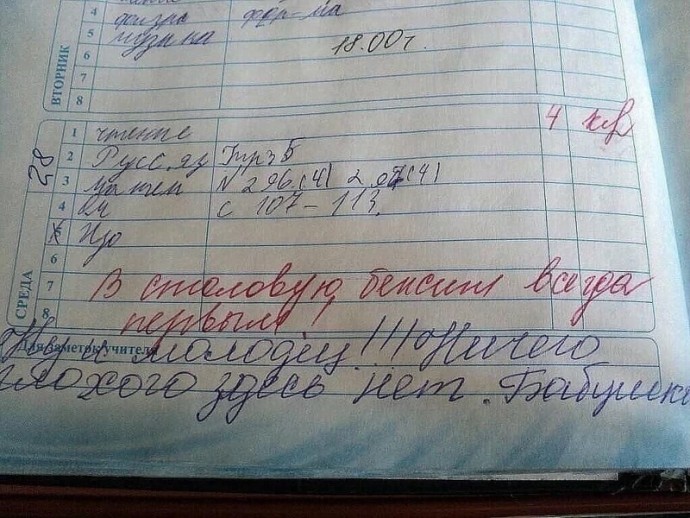 4 физра фор-ма
5 музыка 18.00г.
6
7
8
ВТОРНИК
1 чтение 4
2 Русс.яз Упр 3 Б
3 матем N 296.(4) 2 (4)
4 с 107-113.
5 Изо
6
7 В столовую бежит всегда
8 первым!
28
СРЕДА
Для заметок учителя
Ну и молодец!!! Ничего
плохого здесь нет. Бабушка